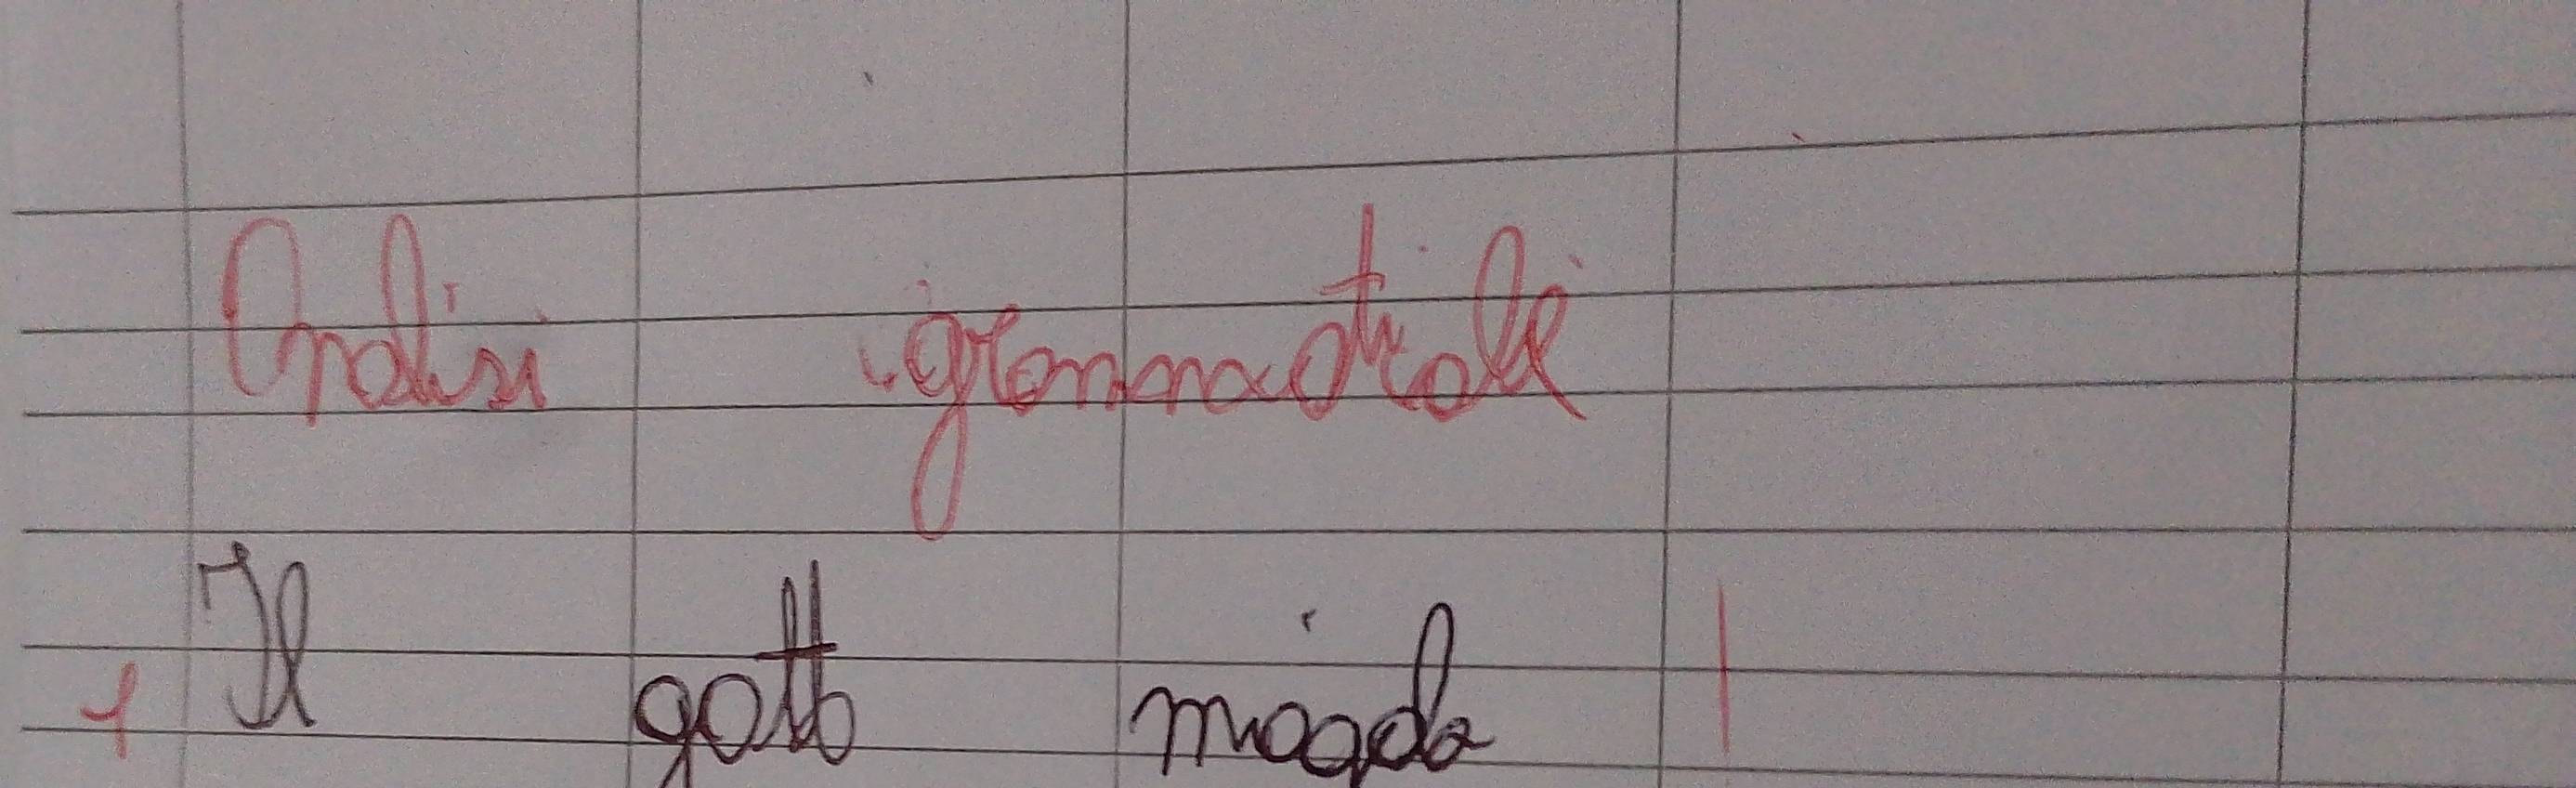 Analisi grammaticale
1 Il gatto miagola |